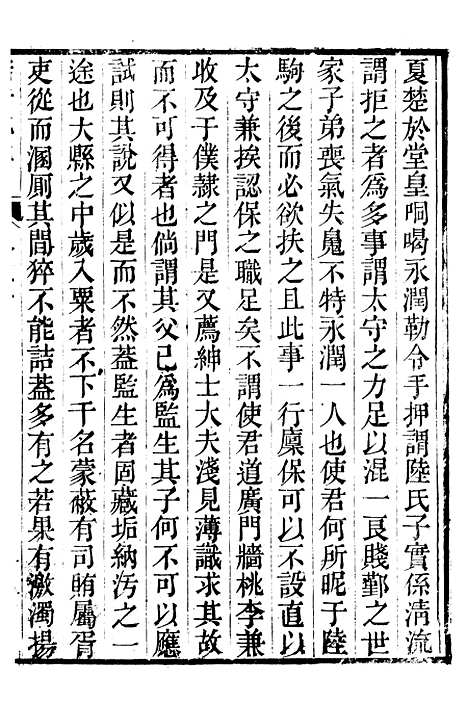 夏楚於堂皇哃喝永潤勒令手押謂陸氏子實係淸流
謂拒之者爲多事謂太守之力足以混一良賤鄞之世
家子弟喪氣失鬼不特永潤一人也使君何所昵于陸
駒之後而必欲扶之且此事一行廪保可以不設直以
太守兼挨認保之職足矣不謂使君道廣門牆桃李兼
收及于僕隷之門是又薦紳士大夫淺見薄識求其故
而不可得者也倘謂其父已爲監生其子何不可以應
試則其說又似是而不然葢監生者固藏垢納汚之一
途也大縣之中歲入粟者不下千名蒙蔽有司賄屬胥
吏從而溷厠其間猝不能詰葢多有之若果有激濁揚